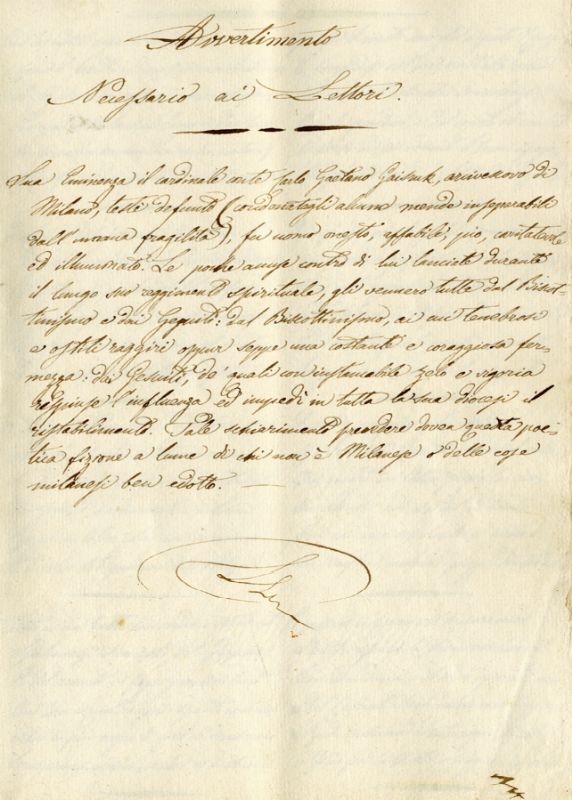 Avvertimento
Necessario ai Lettori.
Sua Eminenza il cardinale conte Carlo Gaetano Gaisruk, arcivescovo di
Milano, testé defunto (condonategli alcune mende inseparabili
dall'umana fragilità), fu uomo onesto, affabile, pio, caritatevole
ed illuminato. Le poche accuse contro di lui lanciate durante
il lungo suo reggimento spirituale, gli vennero tutte dal Biscot-
tinismo e dai Gesuiti: dal Biscottinismo, ai cui tenebrosi
e ostili raggiri oppor seppe una costante e coraggiosa fer-
mezza: dai Gesuiti, de' quali con instancabile zelo e vigoria
respinse l'influenza ed impedì in tutta la sua diocesi il
ristabilimento. Tale schiarimento precedere dovea questa poe-
tica finzione a lume di chi non è Milanese o delle cose
milanesi ben edotto.